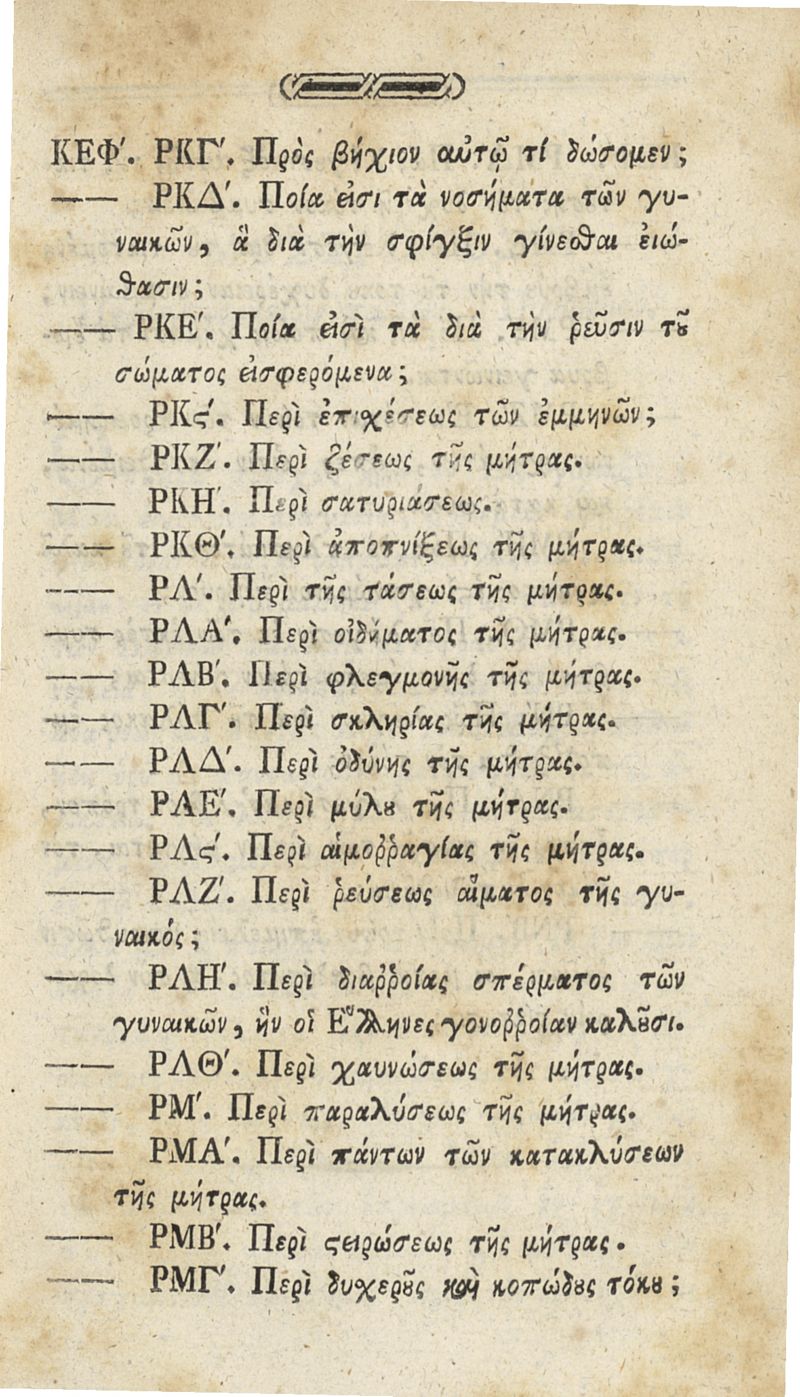 ΚΕΦ'. ΡΚΓ'. Πρὸς βήχιον αὐτῷ τί δώσομεν;
—— ΡΚΔ'. Ποῖα εἰσι τὰ νοσήματα τῶν γυ-
ναικῶν, ἃ διὰ τὴν σφίγξιν γίνεσθαι ἐιώ-
θασιν;
—— ΡΚΕ'. Ποία εἰσὶ τὰ διὰ τὴν ῥεῦσιν τȣ͂
σώματος εἰσφερόμενα;
—— ΡΚϛ'. Περὶ ἐπιχέσεως τῶν ἐμμηνῶν;
—— ΡΚΖ'. Περὶ ζέσεως τῆς μήτρας.
—— ΡΚΗ'. Περὶ σατυριάσεως.
—— ΡΚΘ'. Περὶ ἀποπνίξεως τῆς μήτρας.
—— ΡΛ'. Περὶ τῆς τάσεως τῆς μήτρας.
—— ΡΛΑ'. Περὶ οἰδήματος τῆς μήτρας.
—— ΡΛΒ'. Περὶ φλεγμονῆς τῆς μήτρας.
—— ΡΛΓ'. Περὶ σκληρίας τῆς μήτρας.
—— ΡΛΔ'. Περὶ ὀδύνης τῆς μήτρας.
—— ΡΛΕ'. Περὶ μύλȣ τῆς μήτρας.
—— ΡΛϛ'. Περὶ αἱμοῤῥαγίας τῆς μήτρας.
—— ΡΛΖ'. Περὶ ῥεύσεως αἵματος τῆς γυ-
ναικός;
—— ΡΛΗ'. Περὶ διαῤῥοίας σπέρματος τῶν
γυναικῶν, ἣν οἱ Ἕλληνες γονοῤῥοίαν καλȣ͂σι.
—— ΡΛΘ'. Περὶ χαυνώσεως τῆς μήτρας.
—— ΡΜ'. Περὶ παραλύσεως τῆς μήτρας.
—— ΡΜΑ'. Περὶ πάντων τῶν κατακλύσεων
τῆς μήτρας.
—— ΡΜΒ'. Περὶ ϛειρώσεως τῆς μήτρας.
—— ΡΜΓ'. Περὶ δυχερȣ͂ς καὶ κοπώδȣς τόκȣ;